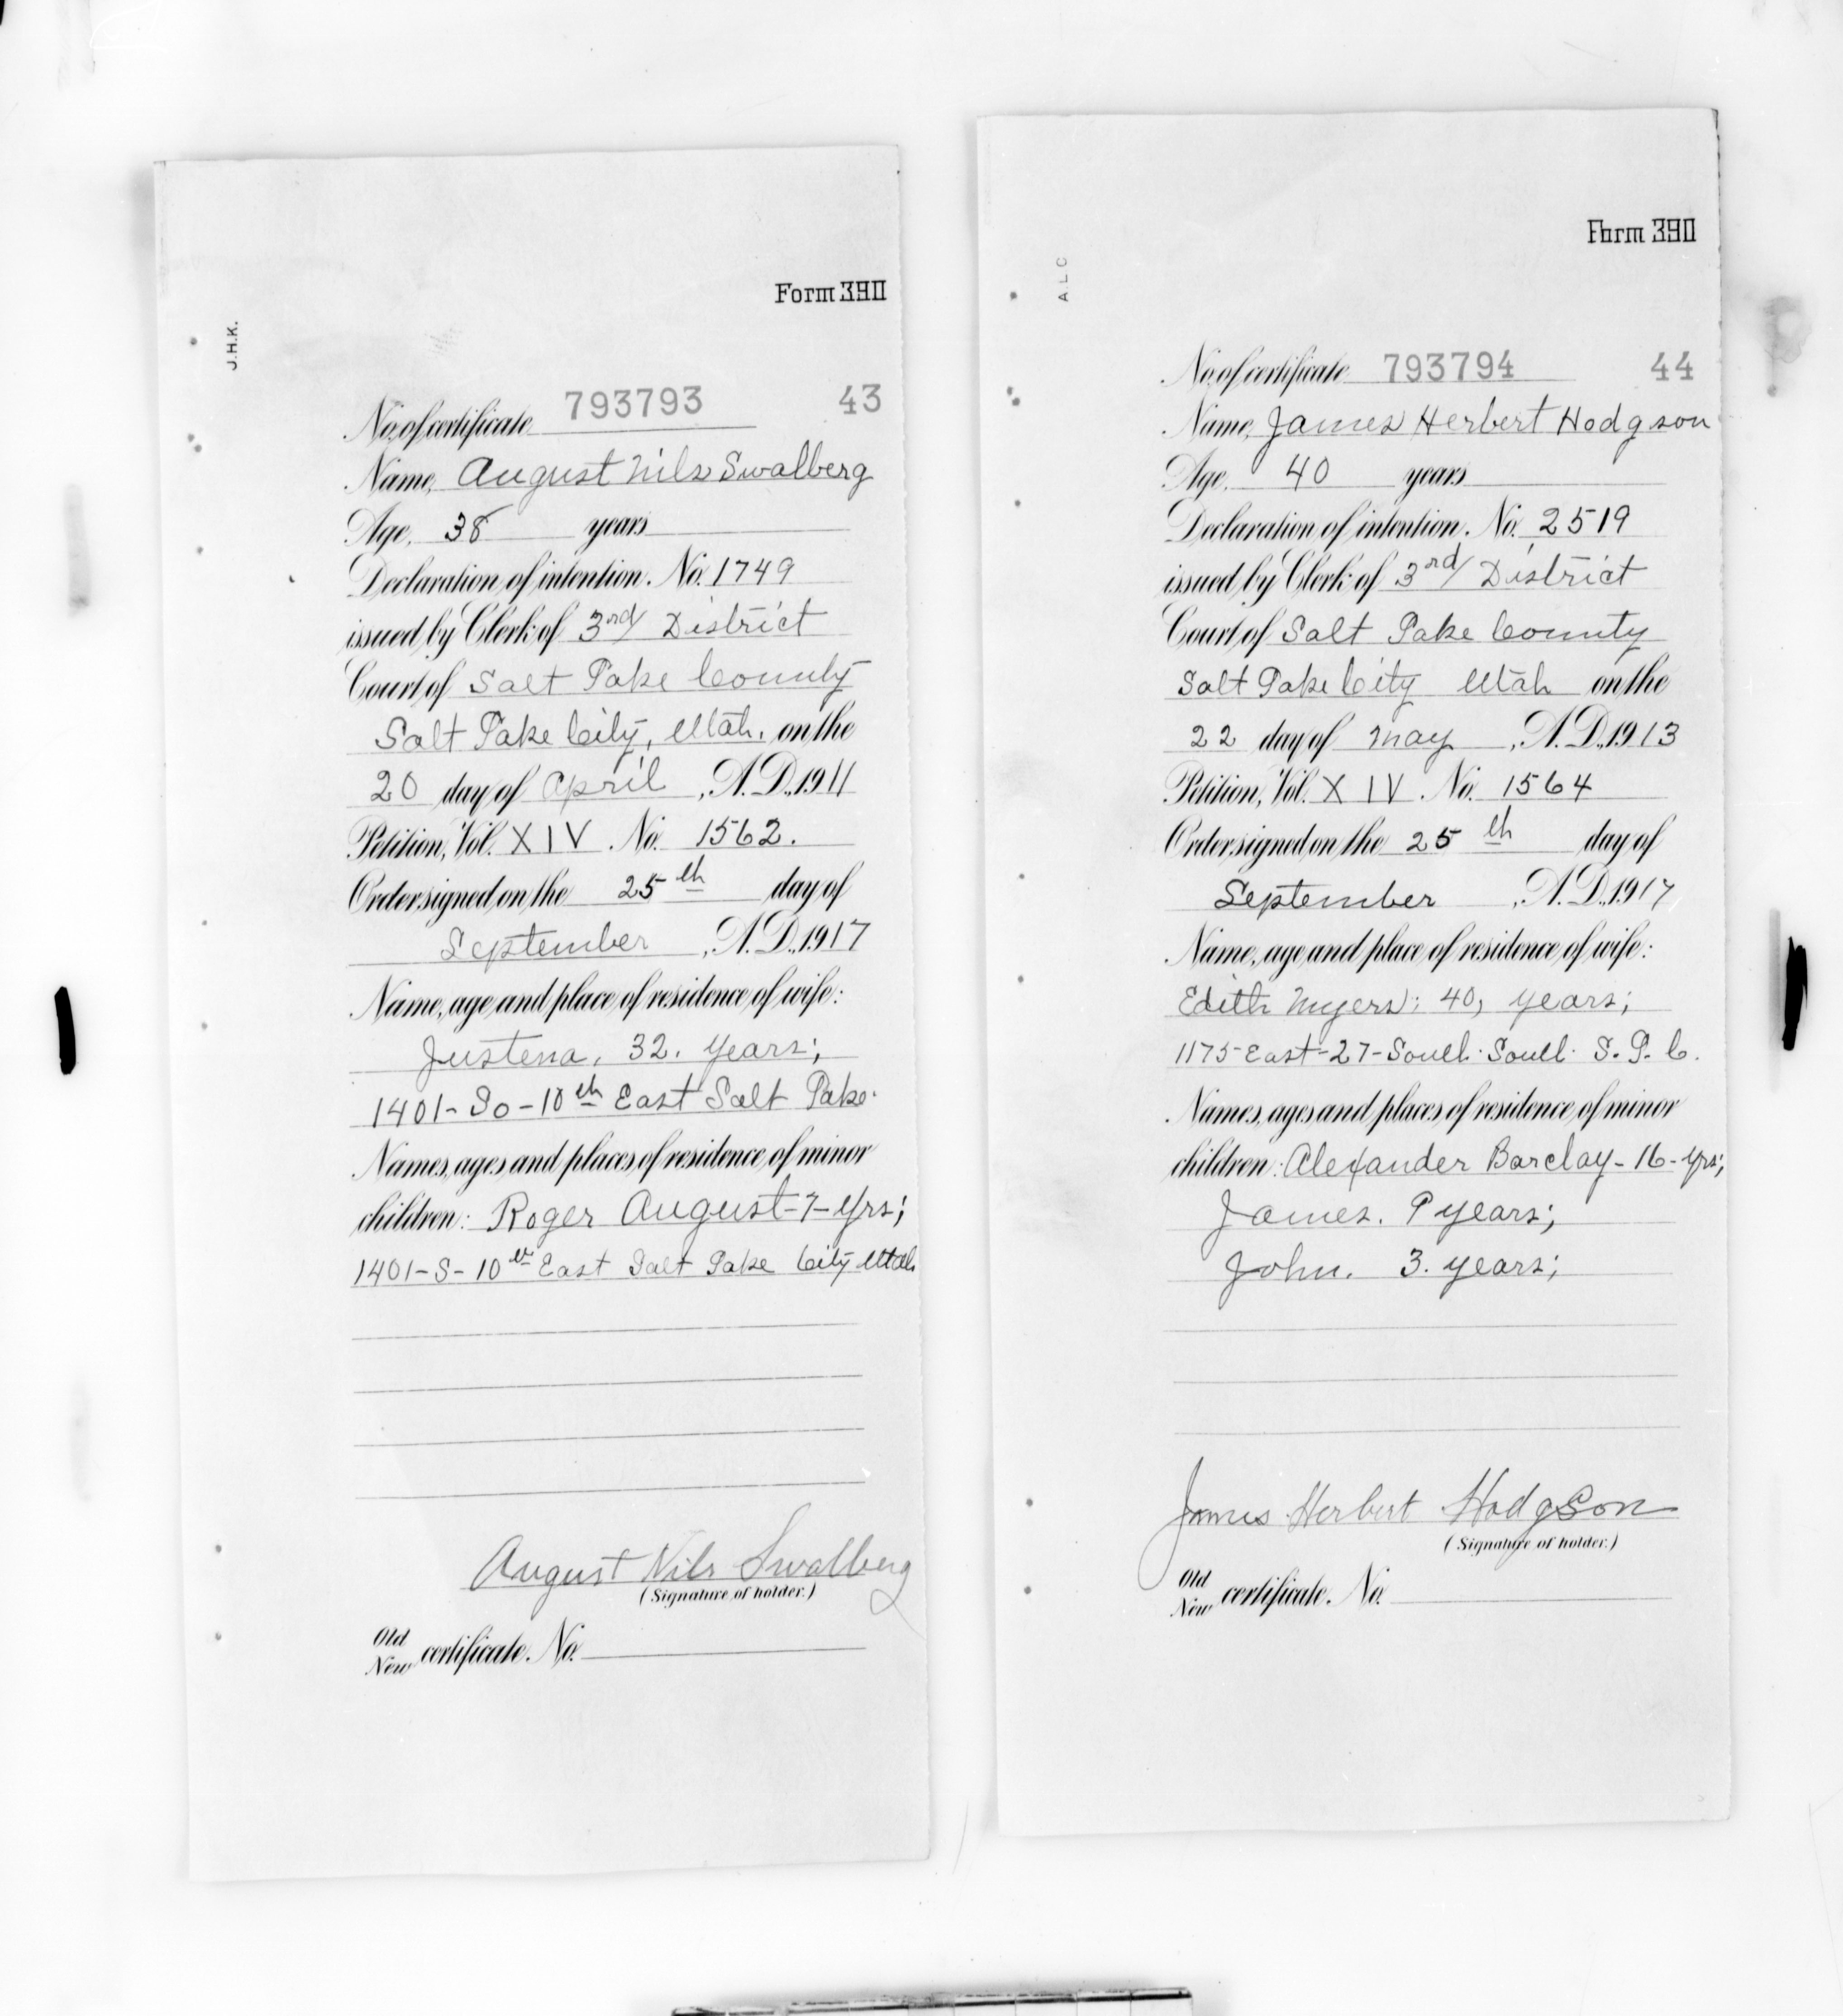 Form 390
J.H.K.
No. of certificate 793793 43
Name, August Nils Swalberg
Age, 38 years
Declaration of intention. No. 1749
issued by Clerk of 3rd District
Court of Salt Lake County
Salt Lake City, Utah. on the
20 day of April, A.D., 1911
Petition, Vol. XIV. No. 1562.
Order signed on the 25th day of
September, A.D., 1917
Name, age and place of residence of wife:
Justena, 32. years;
1401-So-10th East Salt Lake.
Names, ages and places of residence of minor
children: Roger August-7-Yrs;
1401-S-10th East Salt Lake City Utah
August Nils Swalberg
(Signature of holder.)
Old
New certificate. No.
Form 390
A.L.C
No. of certificate 793794 44
Name, James Herbert Hodgson
Age, 40 years
Declaration of intention. No. 2519
issued by Clerk of 3rd District
Court of Salt Lake County
Salt Lake City Utah on the
22 day of May, A.D., 1913
Petition, Vol. XIV. No. 1564
Order signed on the 25th day of
September, A.D., 1917
Name, age and place of residence of wife:
Edith Myers; 40, years;
1175-East-27-South. South. S. L. C.
Names, ages and places of residence of minor
children: Alexander Barclay-16-Yrs;
James. 9 years;
John. 3. years;
James Herbert Hodgson
(Signature of holder.)
Old
New certificate. No.